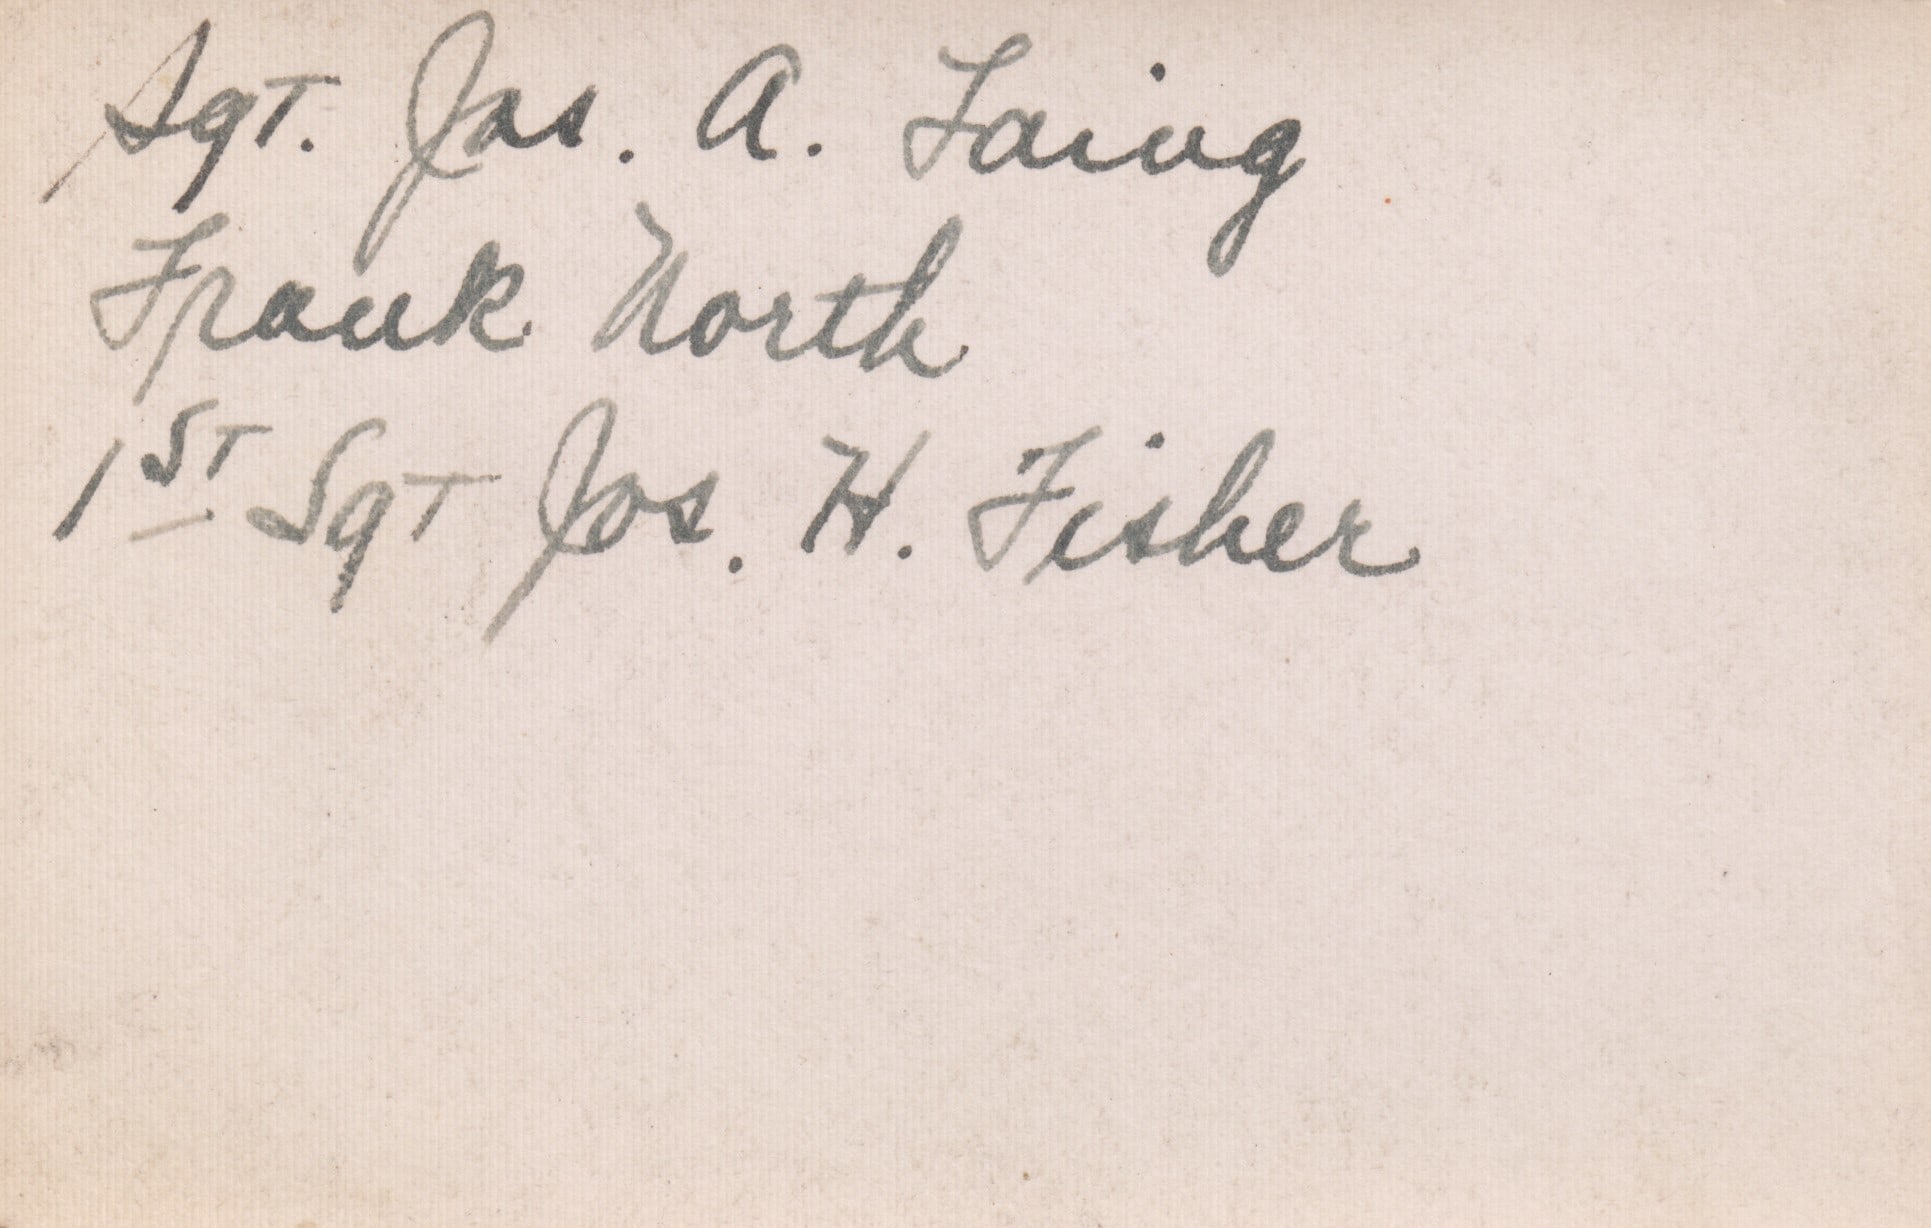 Sgt. Jas. A. Laing
Frank North
1st Sgt Jos. H. Fisher